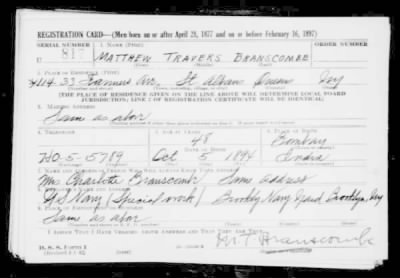 REGISTRATION CARD—(Men born on or after April 28, 1877 and on or before February 16, 1897)
SERIAL NUMBER 1. NAME (Print) ORDER NUMBER
U MATTHEW TRAVERS BRANSCOMBE
(First) (Middle) (Last)
2. PLACE OF RESIDENCE (Print)
Ave. St. Albans Queens
(Number and street) (Town, township, village, or city) (County) (State)
[THE PLACE OF RESIDENCE GIVEN ON THE LINE ABOVE WILL DETERMINE LOCAL BOARD
JURISDICTION; LINE 2 OF REGISTRATION CERTIFICATE WILL BE IDENTICAL]
3. MAILING ADDRESS
Same as above
4. TELEPHONE 5. AGE IN YEARS 6. PLACE OF BIRTH
48 Bombay
DATE OF BIRTH
HO-5-5789 Oct 5 1894 India
7. NAME AND ADDRESS OF PERSON WHO WILL ALWAYS KNOW YOUR ADDRESS
Mrs Charlotte Branscombe Same address
8. EMPLOYER'S NAME AND ADDRESS
US Navy (Special work) Brooklyn Navy Yard, Brooklyn, NY
9. PLACE OF EMPLOYMENT OR BUSINESS
Same as above
I AFFIRM THAT I HAVE VERIFIED ABOVE ANSWERS AND THAT THEY ARE TRUE.
D. S. S. Form 1
M T Branscombe